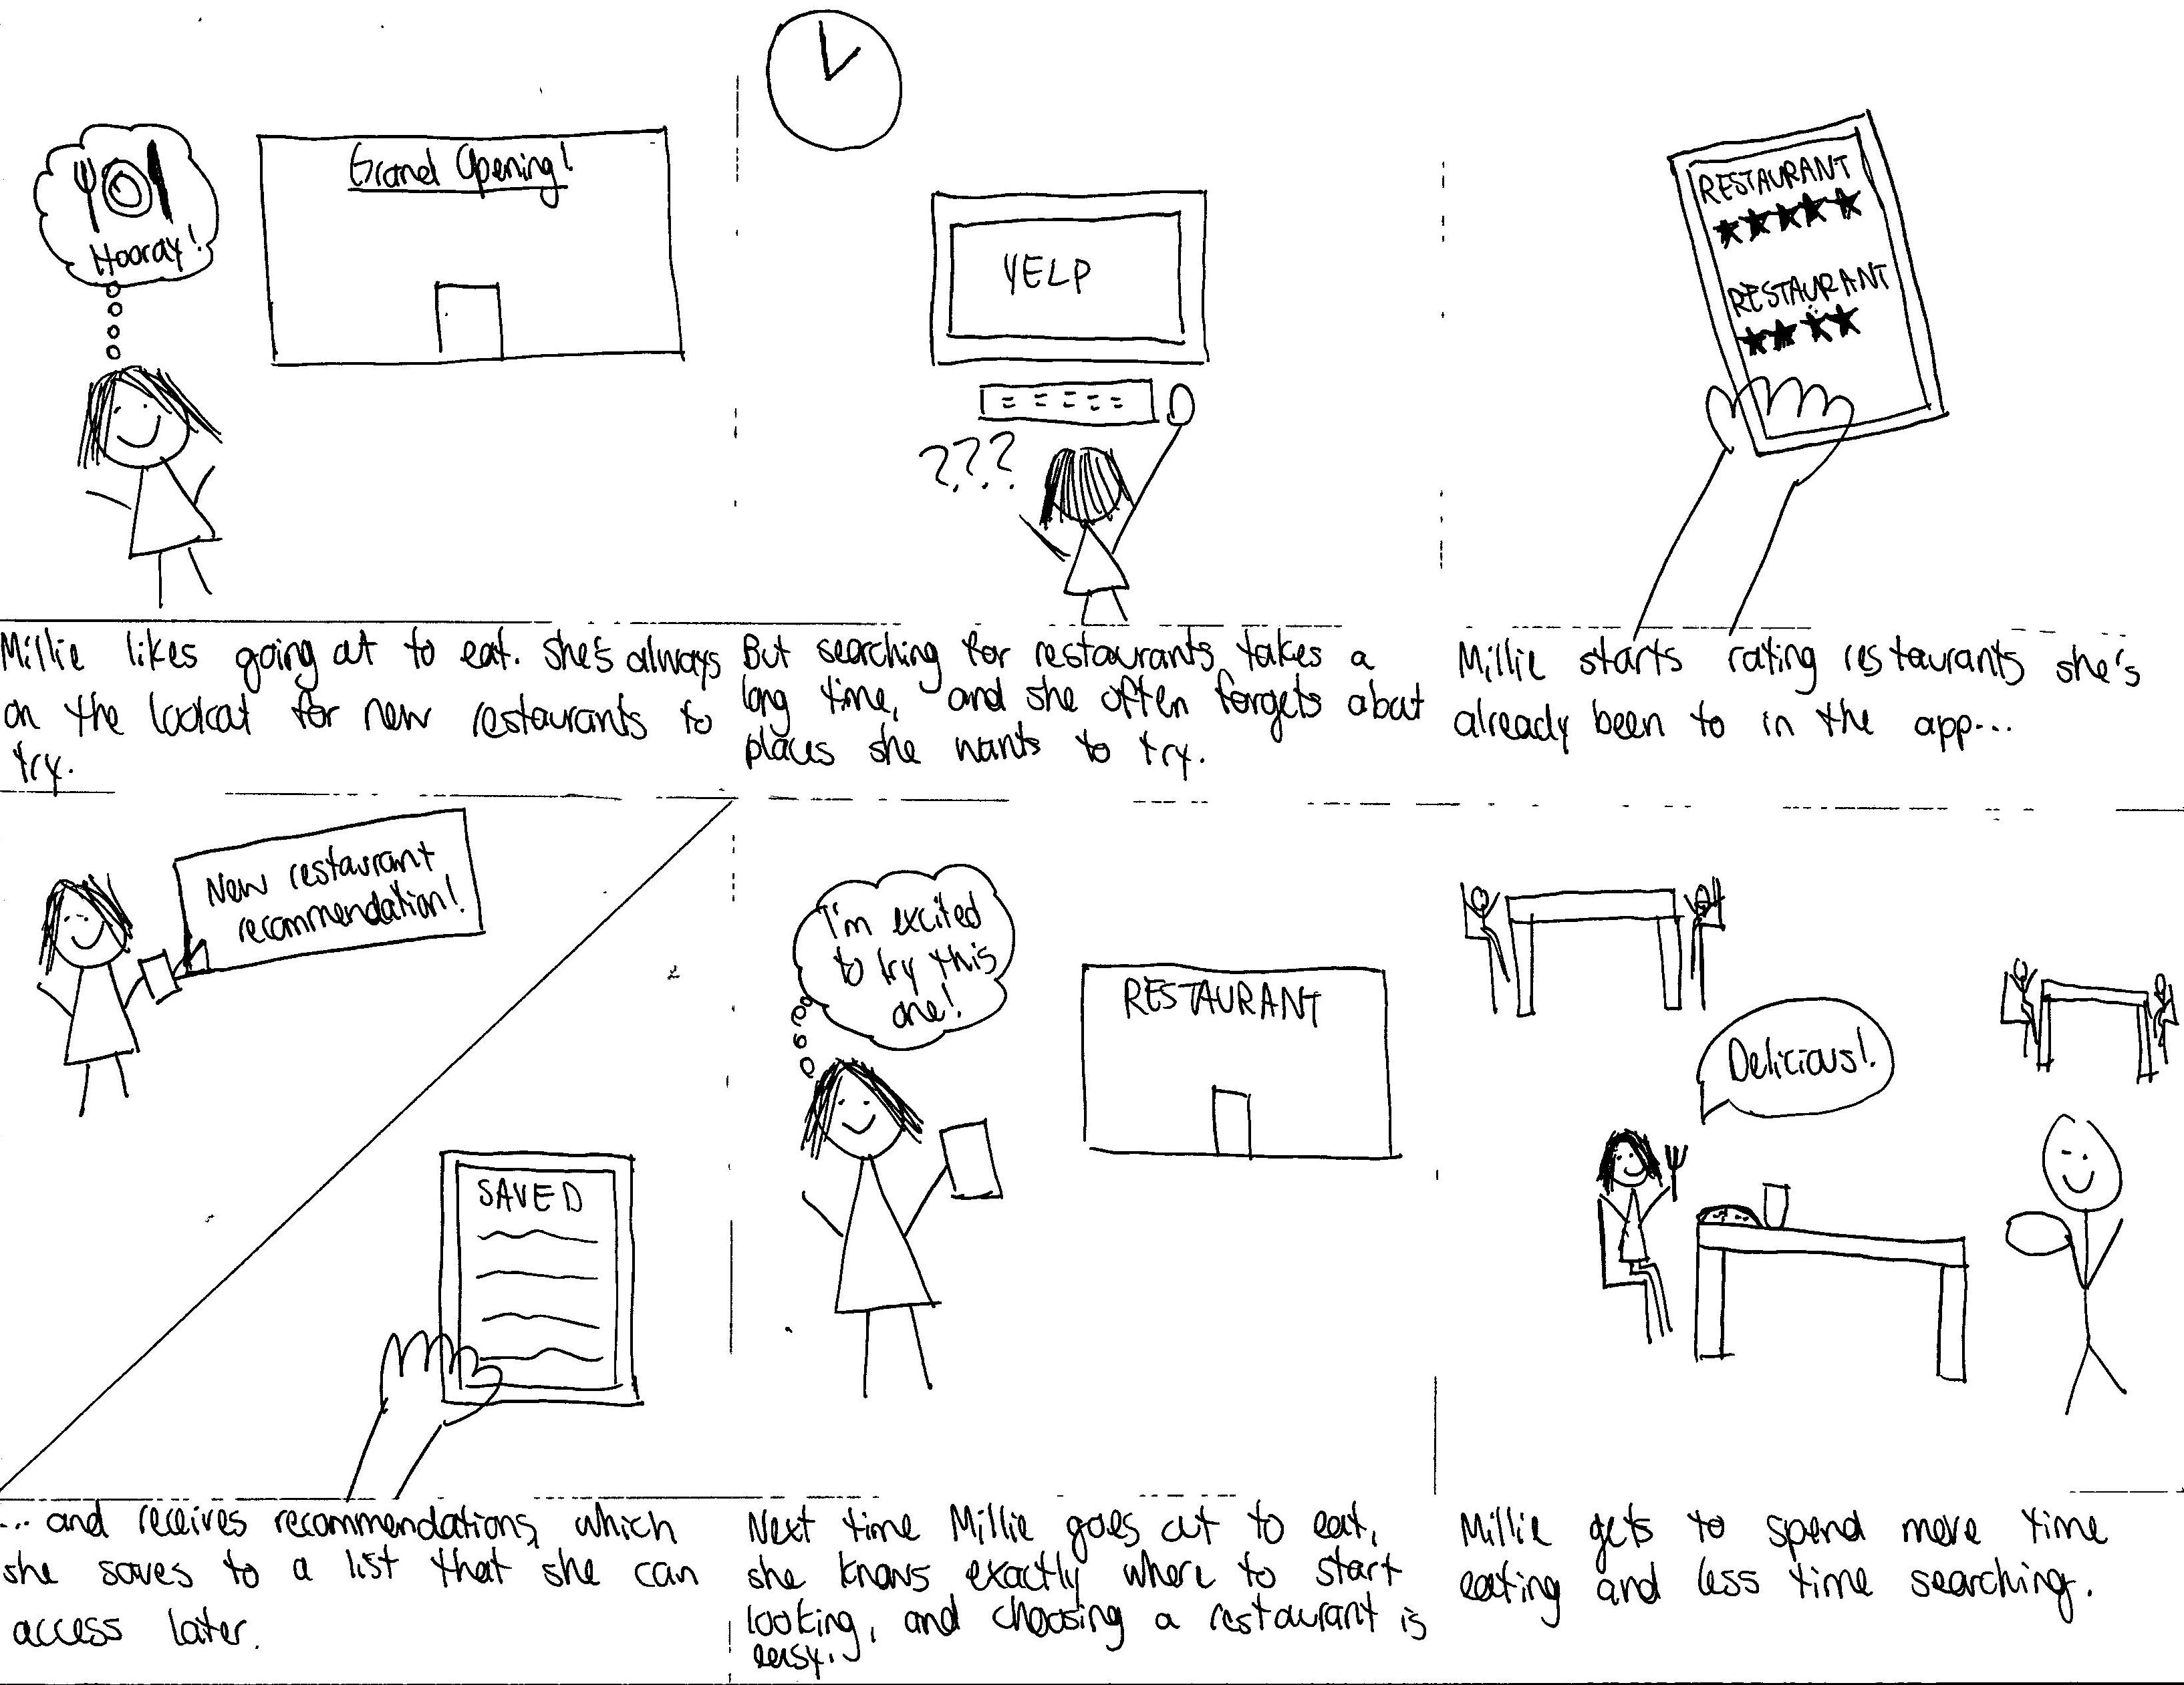 Hooray!
Grand Opening!
Millie likes going out to eat. She's always
on the lookout for new restaurants to
try.
YELP
???
But searching for restaurants takes a
long time, and she often forgets about
places she wants to try.
RESTAURANT
RESTAURANT
Millie starts rating restaurants she's
already been to in the app...
New restaurant
recommendation!
SAVED
... and receives recommendations, which
she saves to a list that she can
access later.
I'm excited
to try this
one!
RESTAURANT
Next time Millie goes out to eat,
she knows exactly where to start
looking, and choosing a restaurant is
easy.
Delicious!
Millie gets to spend more time
eating and less time searching.